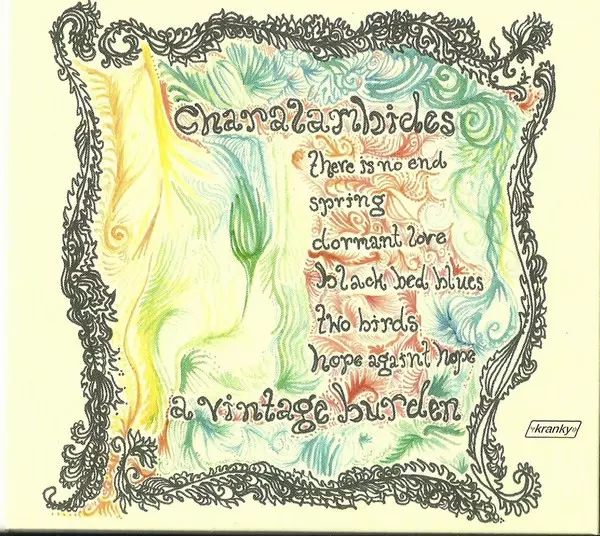 Charalambides
there is no end
spring
dormant love
black bed blues
two birds
hope againt hope
a vintage burden
kranky